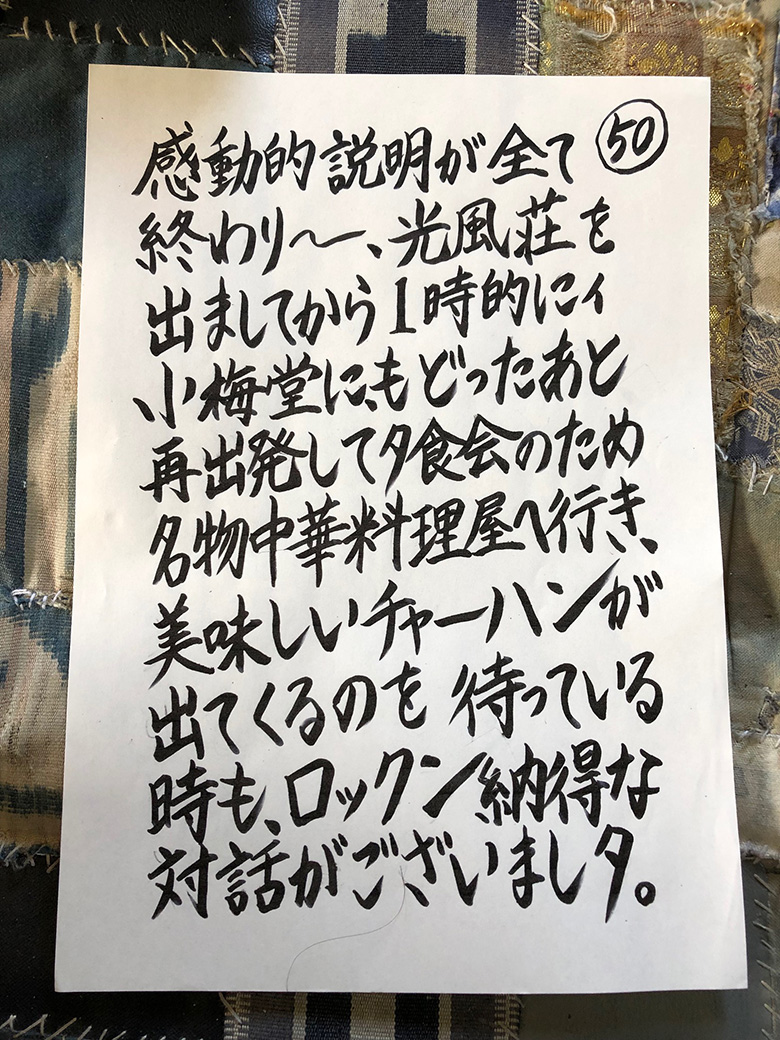 感動的説明が全て ㊿
終わり〜、光風荘を
出ましてから1時的にィ
小梅堂に、もどったあと
再出発して夕食会のため
名物中華料理屋へ行き、
美味しいチャーハンが
出てくるのを待っている
時も、ロックン納得な
対話がございましタ。